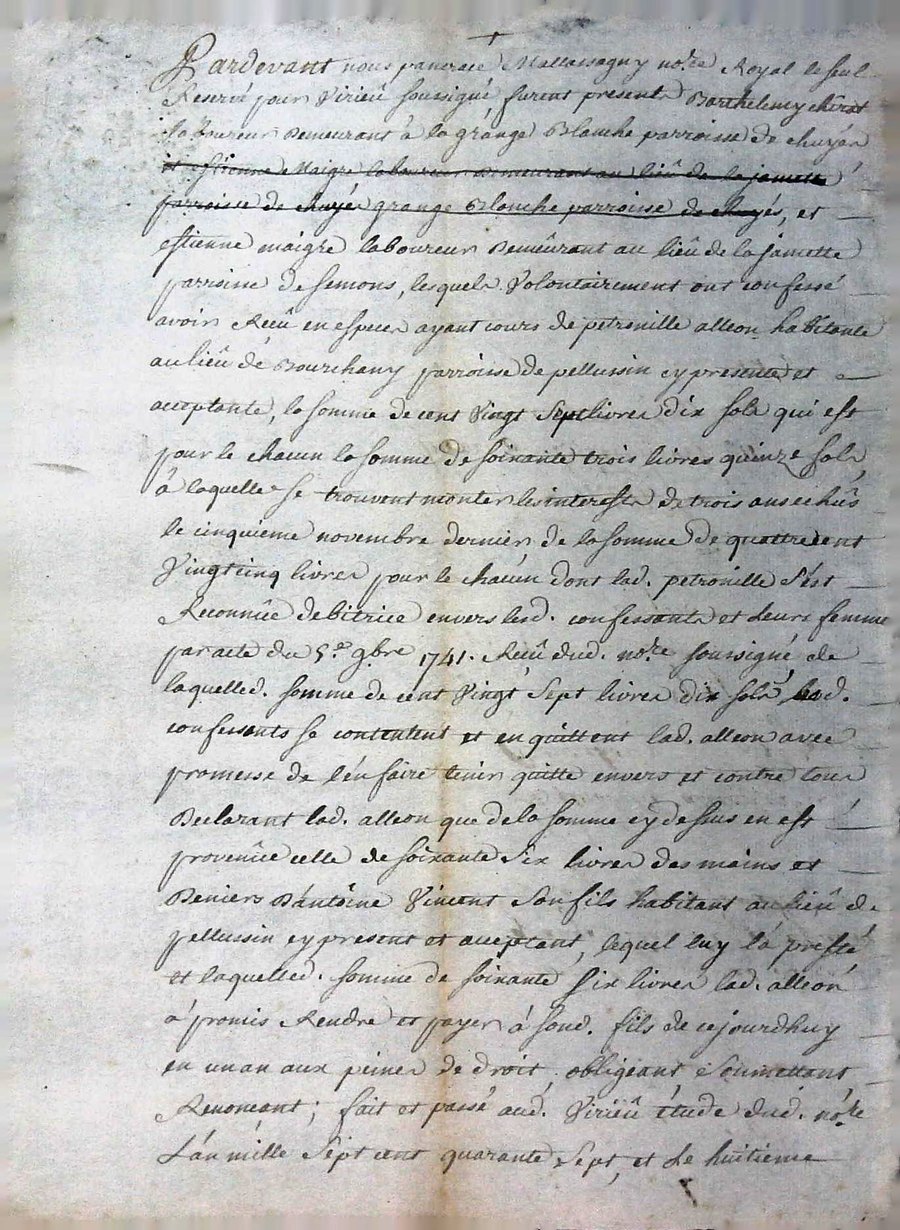 Pardevant nous pancrace Mallassagny no.re Royal le seul
Reservé pour Virieû soussigné, furent presents Barthelemy chirat
laboureur demeurant à la grange Blanche parroisse de chuyér
et estienne Maigre laboureur demeurant au lieû de la jamette
parroisse de chuyér grange Blanche parroisse de chuyés, et
estienne maigre laboureur demeûrant au lieû de la jamette
parroisse de semons, lesquels Volontairement ont confessé
avoir Reçû en especes ayant cours de petronille alleon habitante
au lieû de Bourchany parroisse de pellussin cy presente et
acceptante, la somme de cent Vingt Sept livres dix sols qui est
pour le chacun la somme de soixante trois livres quinze sols,
à laquelle se trouvent monter les interests de trois ans echûs
le cinquieme novembre dernier de la somme de quattre cent
Vingt cinq livres pour le chacun dont lad. petronille s'est
Reconnûe debitrice envers lesd. confessants et leurs femme
par acte du 5.e 9bre 1741. Reçû dud. no.re soussigné, de
laquelled. somme de cent Vingt Sept livres dix sols, lesd.
confessants se contentent et en quittent lad. alleon avec
promesse de l'en faire tenir quitte envers et contre tous
Declarant lad. alleon que de la somme cy dessus en est
provenûe celle de soixante Six livres des mains et
Deniers D'antoine Vincent Son fils habitant au lieû de
pellussin cy present et acceptant, lequel luy l'a presté
et laquelled. somme de soixante Six livres lad. alleon
à promis Rendre et payer à Sond. fils de cejourdhuy
en un an aux peines de droit, obligeant Soumettant
Renonceant; fait et passé aud. Virieû étude dud. no.re
L'an mille Sept cent quarante Sept, et Le huitieme